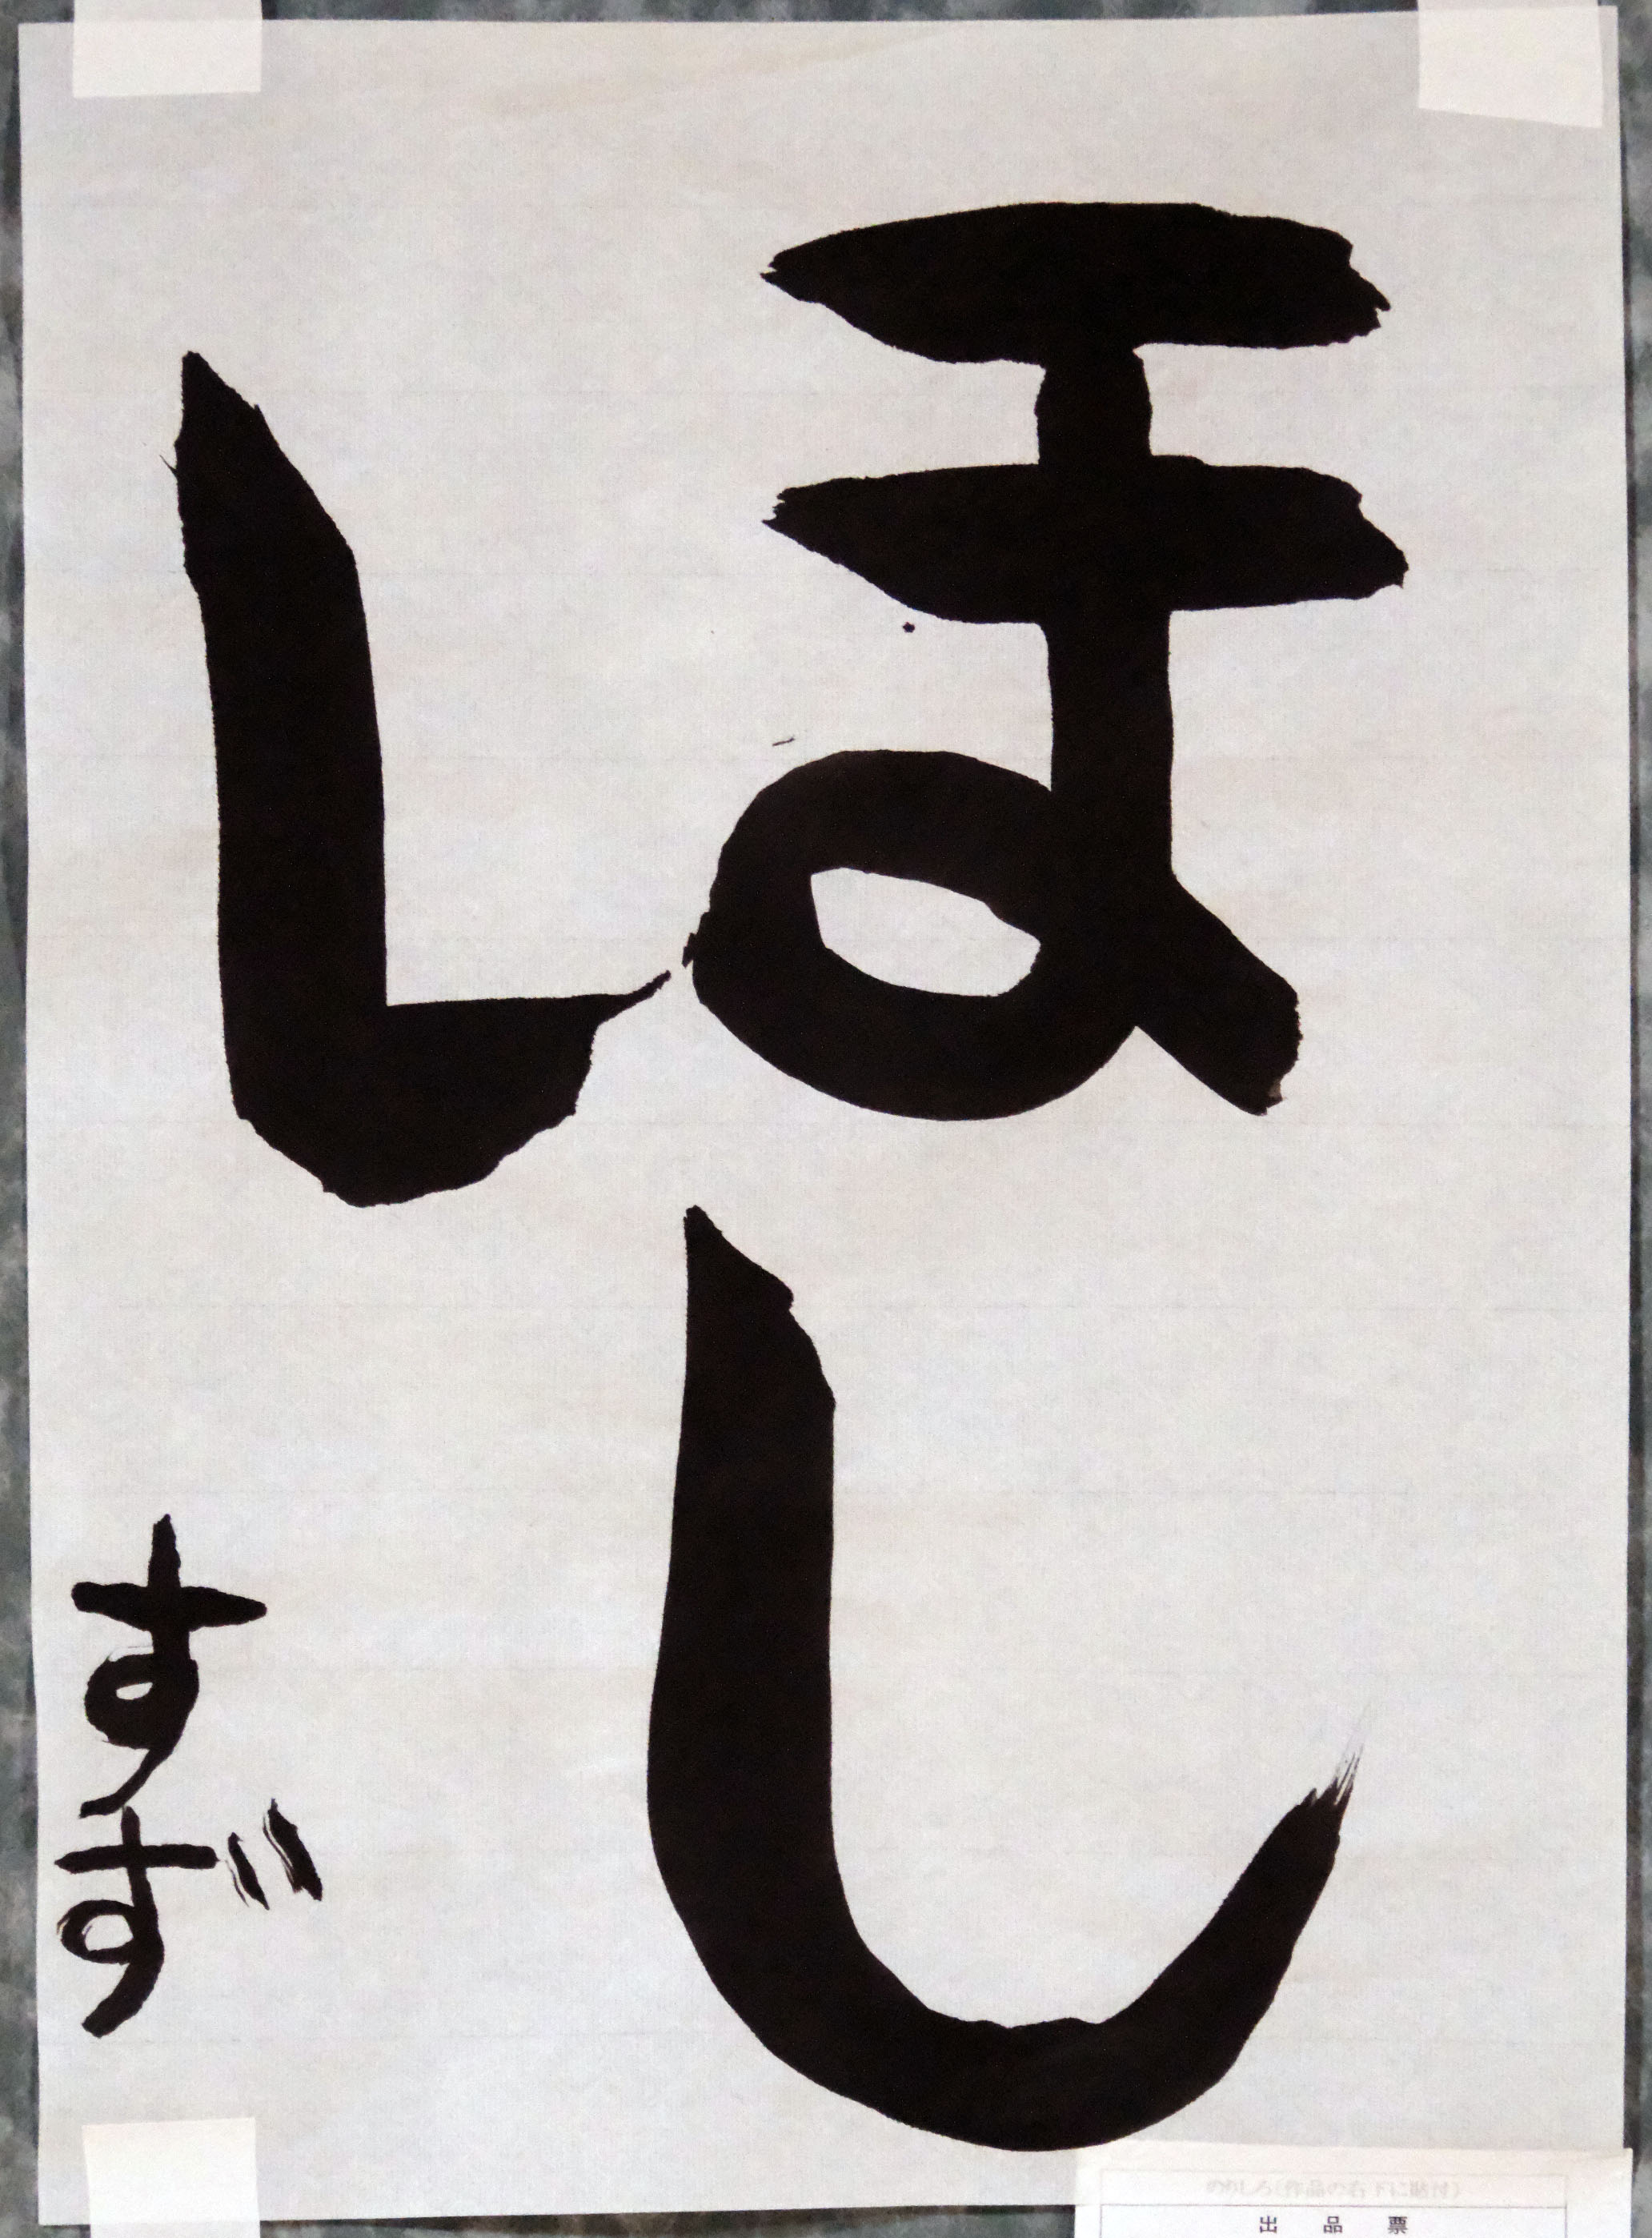 ほし
すず
のりしろ(作品の右下に貼付)
出品票